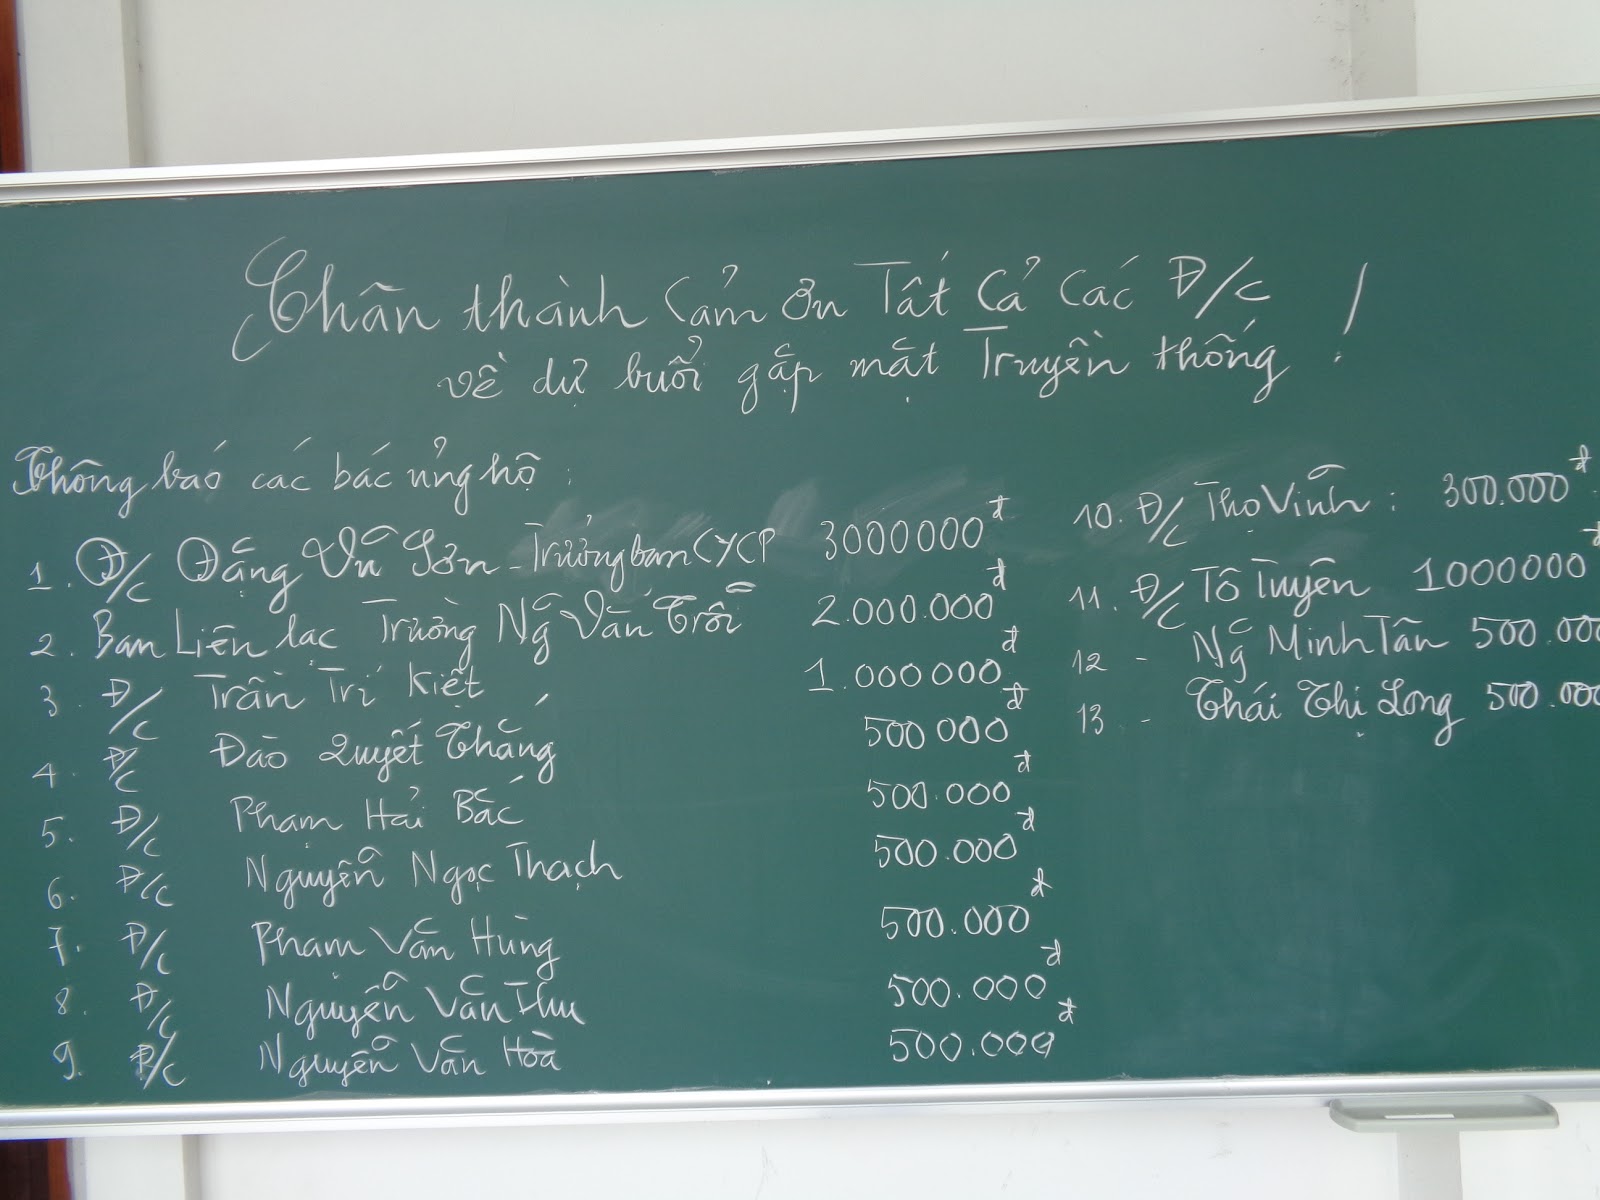 Chân thành Cảm ơn Tất Cả Các Đ/c
về dự buổi gặp mặt Truyền thống !
Thông báo các bác ủng hộ :
1. Đ/c Đặng Vũ Sơn - Trưởng ban CYCP 3000000đ
2. Ban Liên lạc Trường Ng Văn Trỗi 2.000.000đ
3. Đ/c Trần Trí Kiệt 1.000000đ
4. Đ/c Đào Quyết Thắng 500 000đ
5. Đ/c Phạm Hải Bắc 500.000đ
6. Đ/c Nguyễn Ngọc Thạch 500.000đ
7. Đ/c Phạm Văn Hùng 500.000đ
8. Đ/c Nguyễn Văn Thu 500.000đ
9. Đ/c Nguyễn Văn Hoà 500.000đ
10. Đ/c Thọ Vinh : 300.000đ
11. Đ/c Tô Tuyên 1000000đ
12 - Ng Minh Tân 500.000
13 - Thái Thị Long 500.000